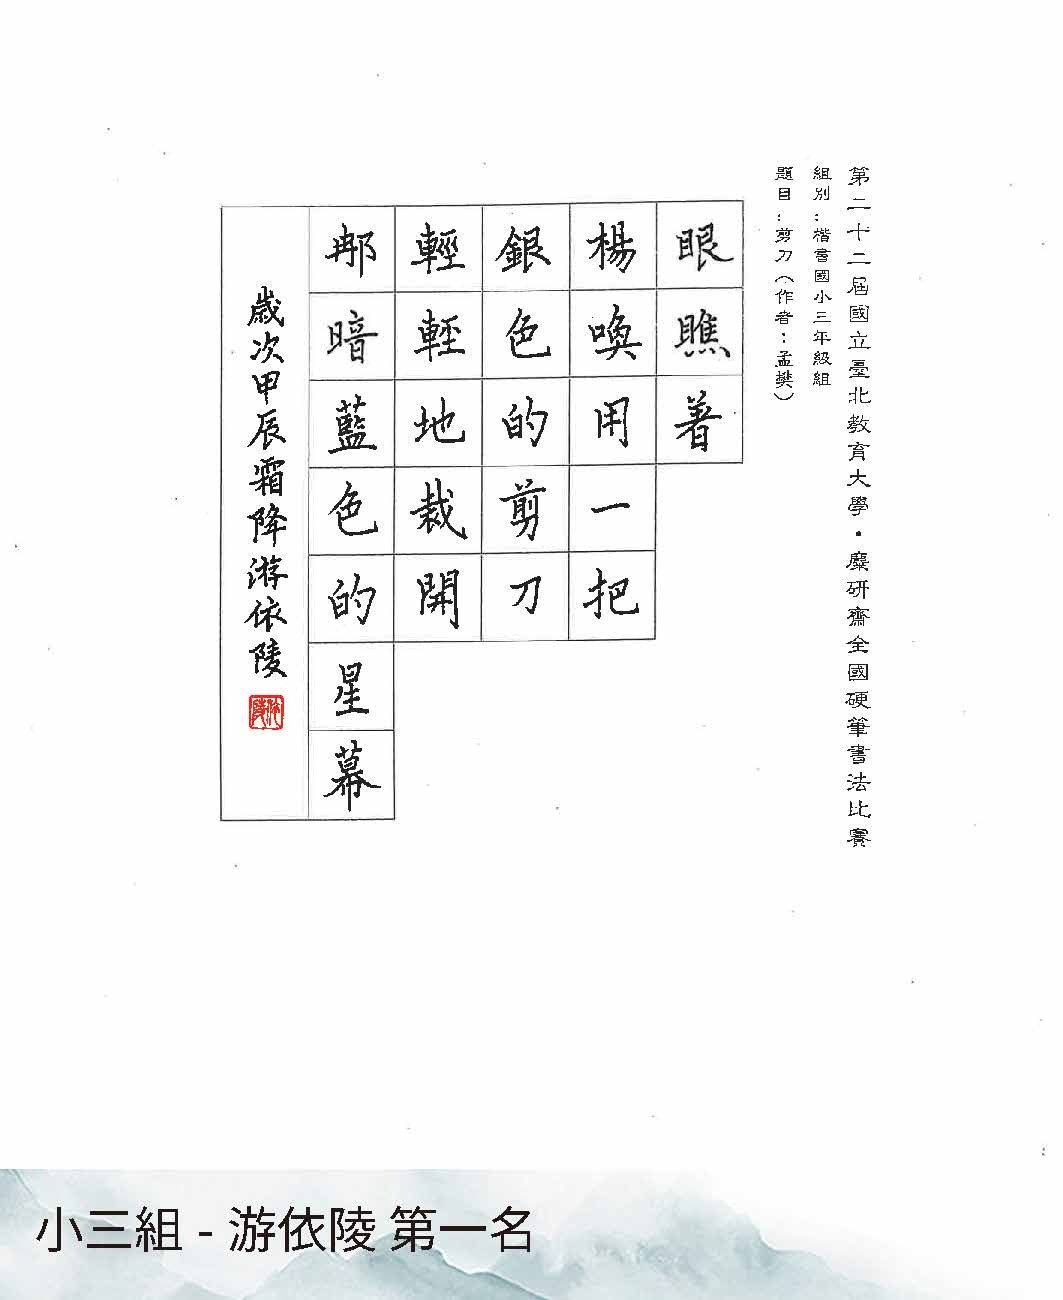 第二十二屆國立臺北教育大學・麋研齋全國硬筆書法比賽
組別：楷書國小三年級組
題目：剪刀（作者：孟樊）
眼瞧著
楊喚用一把
銀色的剪刀
輕輕地裁開
那暗藍色的星幕
歲次甲辰霜降游依陵
小三組 - 游依陵 第一名